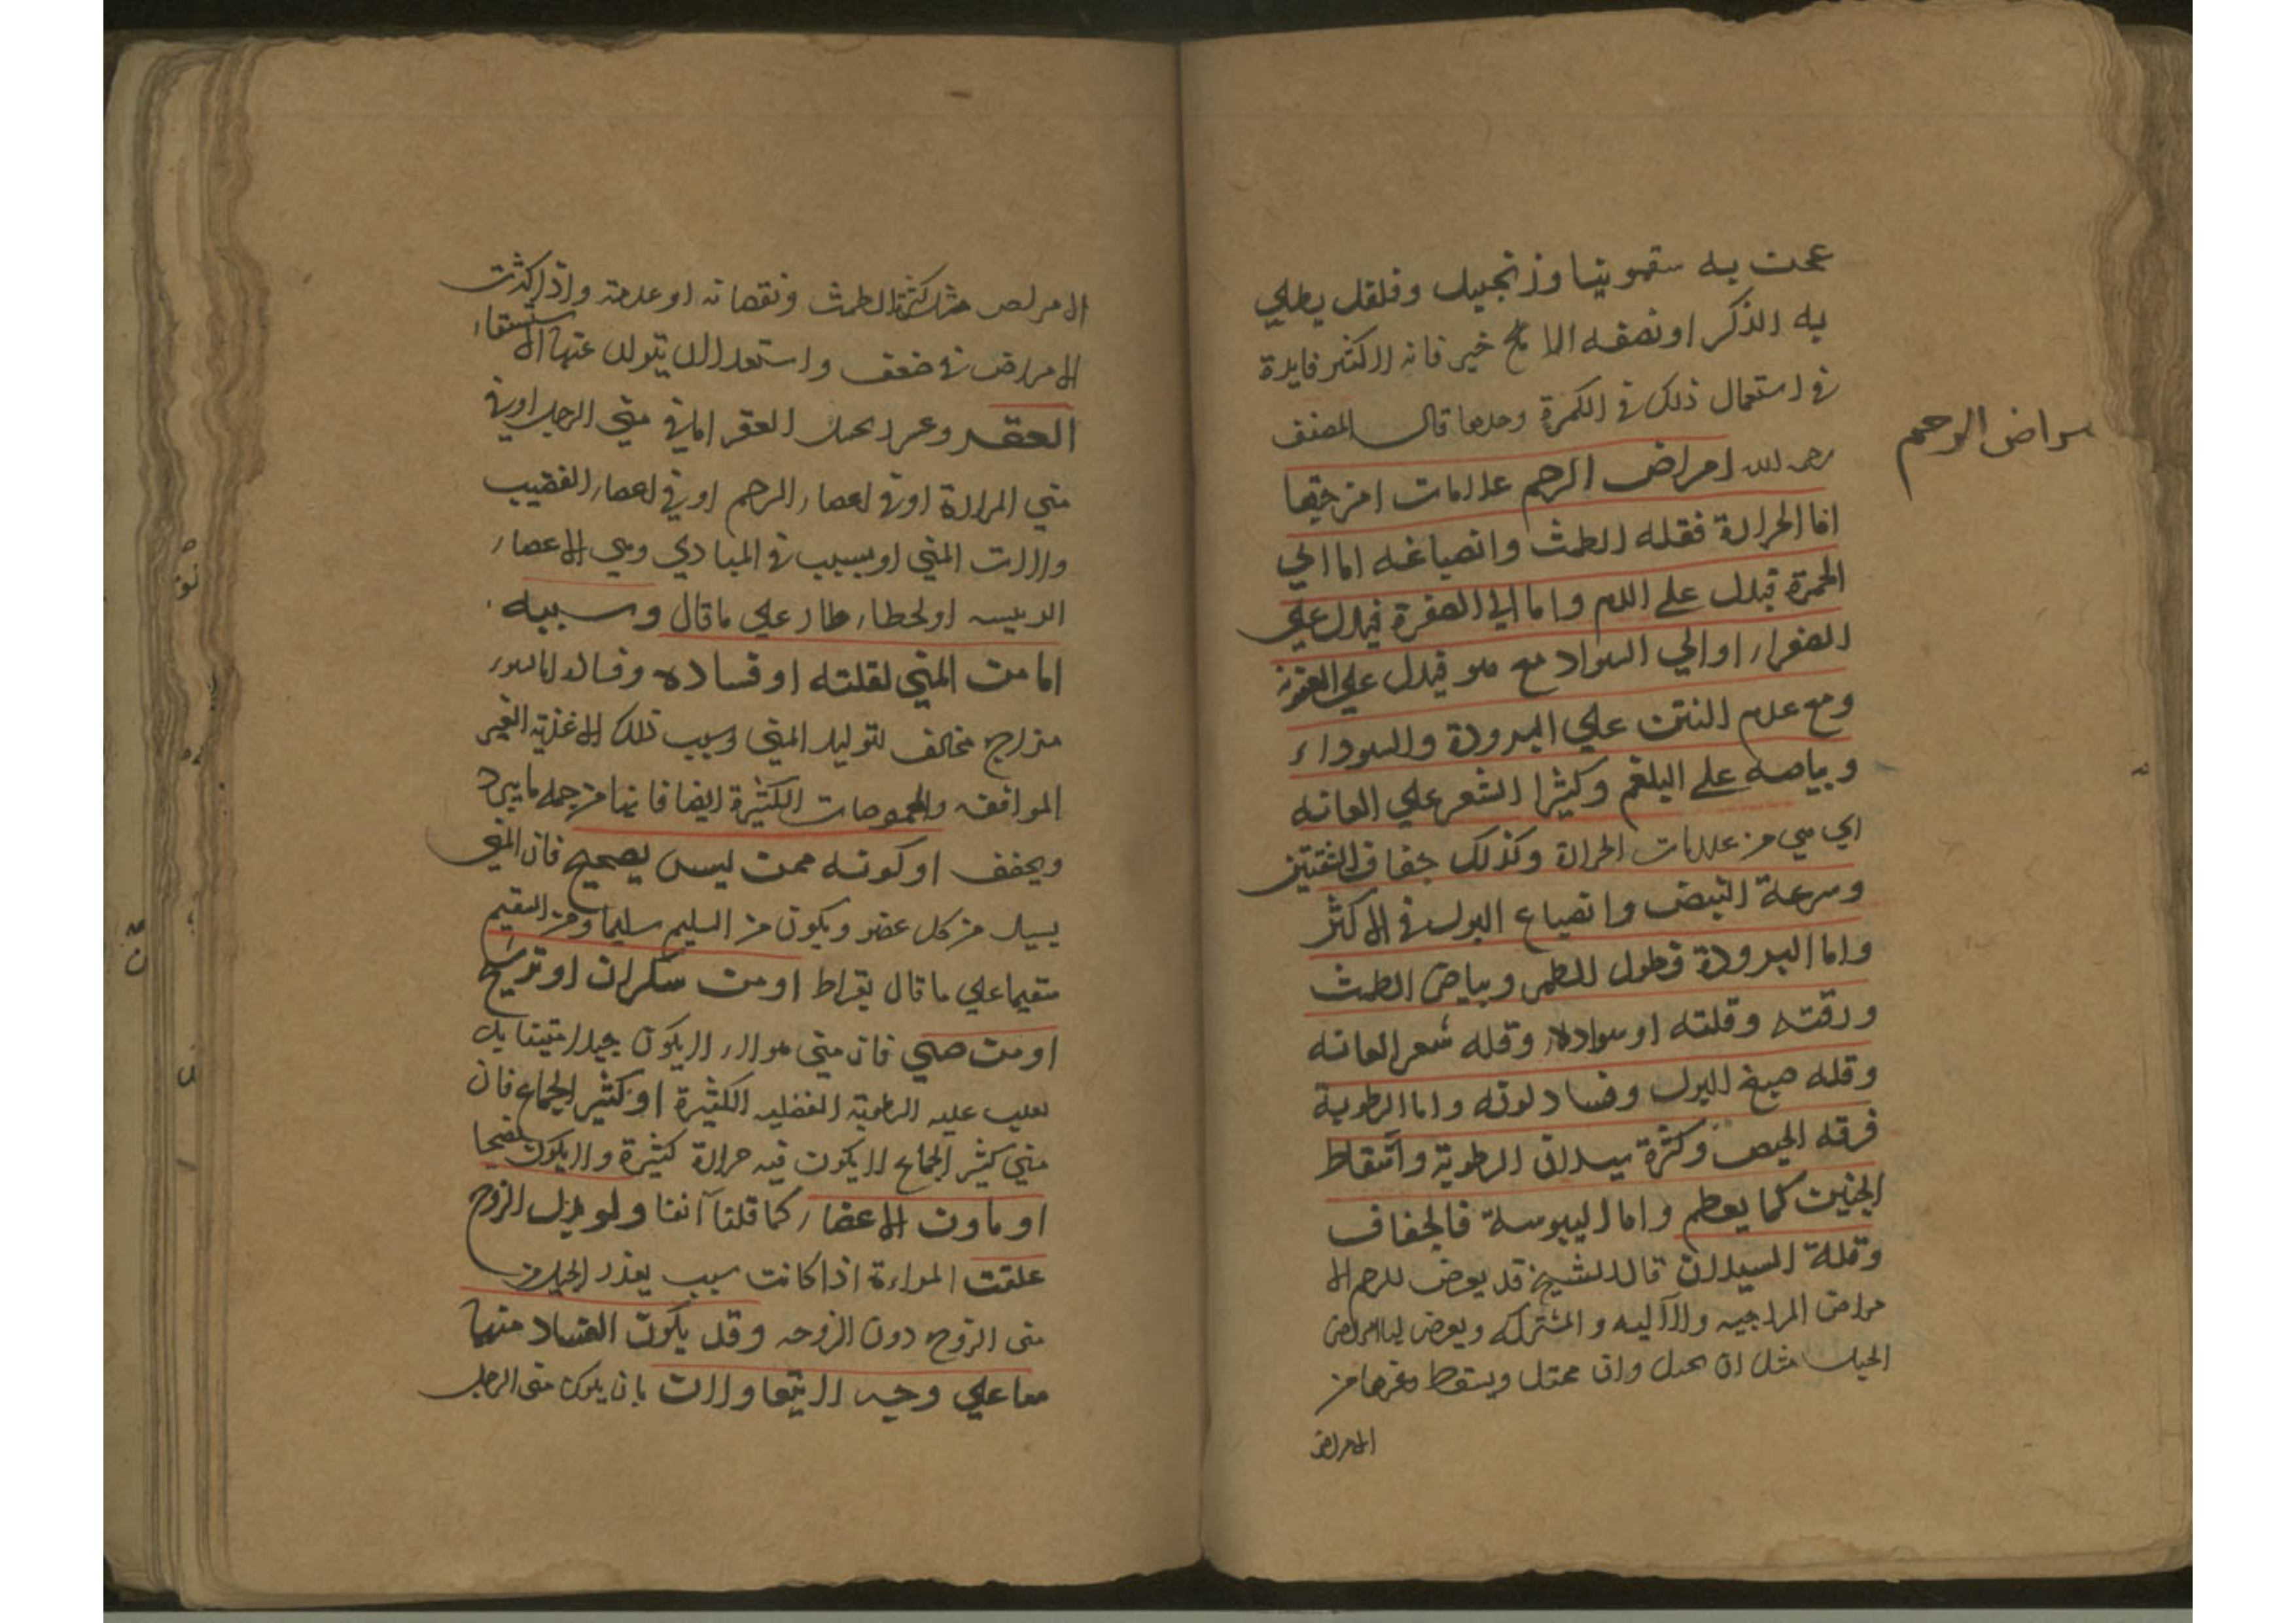 عجنت به سقمونيا وزنجبيل وفلفل يطلي
به الذكر او نصفه الا خير فانه الاكثر فايدة
في استعمال ذلك في الكمرة وحدها قال المصنف
رحمه الله امراض الرحم علامات امزجتها
اما الحرارة فقله الطمث وانصباغه اما الي
الحمرة فيدل على الدم واما الي الصفرة فيدل علي
الصفراء او الي السواد مع فيدل علي العفونة
ومع عدم النتن علي البرودة والسوداء
وبياضه على البلغم وكثيرا الشعر علي العانه
اي هي من علامات الحرارة وكذلك جفاف الشفتين
وسرعة النبض وانصباغ البول في الاكثر
واما البرودة فطول للطهر وبياض الطمث
ورقته وقلته او سواده وقله شعر العانه
وقله صبغ البول وفساد لونه واما الرطوبة
فرقه الحيض وكثرة سيلان الرطوبة واسقاط
الجنين كما يعظم واما اليبوسة فالجفاف
وقلة السيلان قال الشيخ قد يعرض للرحم الا
مراض المزاجيه والآليه والمشتركه ويعرض لها امراض
الحبل مثل ان تحبل وان ويسقط وغيرها من
الامراض
امراض الرحم
الامراض مثل كثرة الطمث ونقصانه او عدمه واذا كثرت
الامراض في ضعف واستعد الان يتولد عنها الاستسقاء
العقر وعسر الحبل العقر اما في مني الرجل او في
مني المراة او في اعضاء الرحم او في اعضاء القضيب
والات المني او بسبب في المبادي وهي الاعضاء
الرييسه او لخطاء طار علي ما قال وسببه
اما من المني لقلته او فساده وفساده اما لسوء
مزاج مخالف لتوليد المني وسبب ذلك الاغذيه الغير
الموافقه والحموضات الكثيرة ايضا فانها من جمله ما يبرد
ويجفف او كونه ممن ليس بصحيح فان المني
يسيل من كل عضو ويكون من السليم سليما ومن السقيم
سقيما علي ما قال بقراط او من سكران او
او من صبي فان مني هولاء لا يكون جيدا متينا بل
تغلب عليه الرطوبة الفضليه الكثيرة او كثير الجماع فان
مني كثير الجماع لا يكون فيه حرارة كثيرة ولا يكون نضيجا
او ماون الاعضاء كما قلنا آنفا ولو بدل الزوج
علقت المراءة اذا كانت سبب تعذر الحبل من
مني الزوج دون الزوجه وقد يكون الفساد منهما
معا علي وجه لا يتعاولان بان يكون مني الرجل